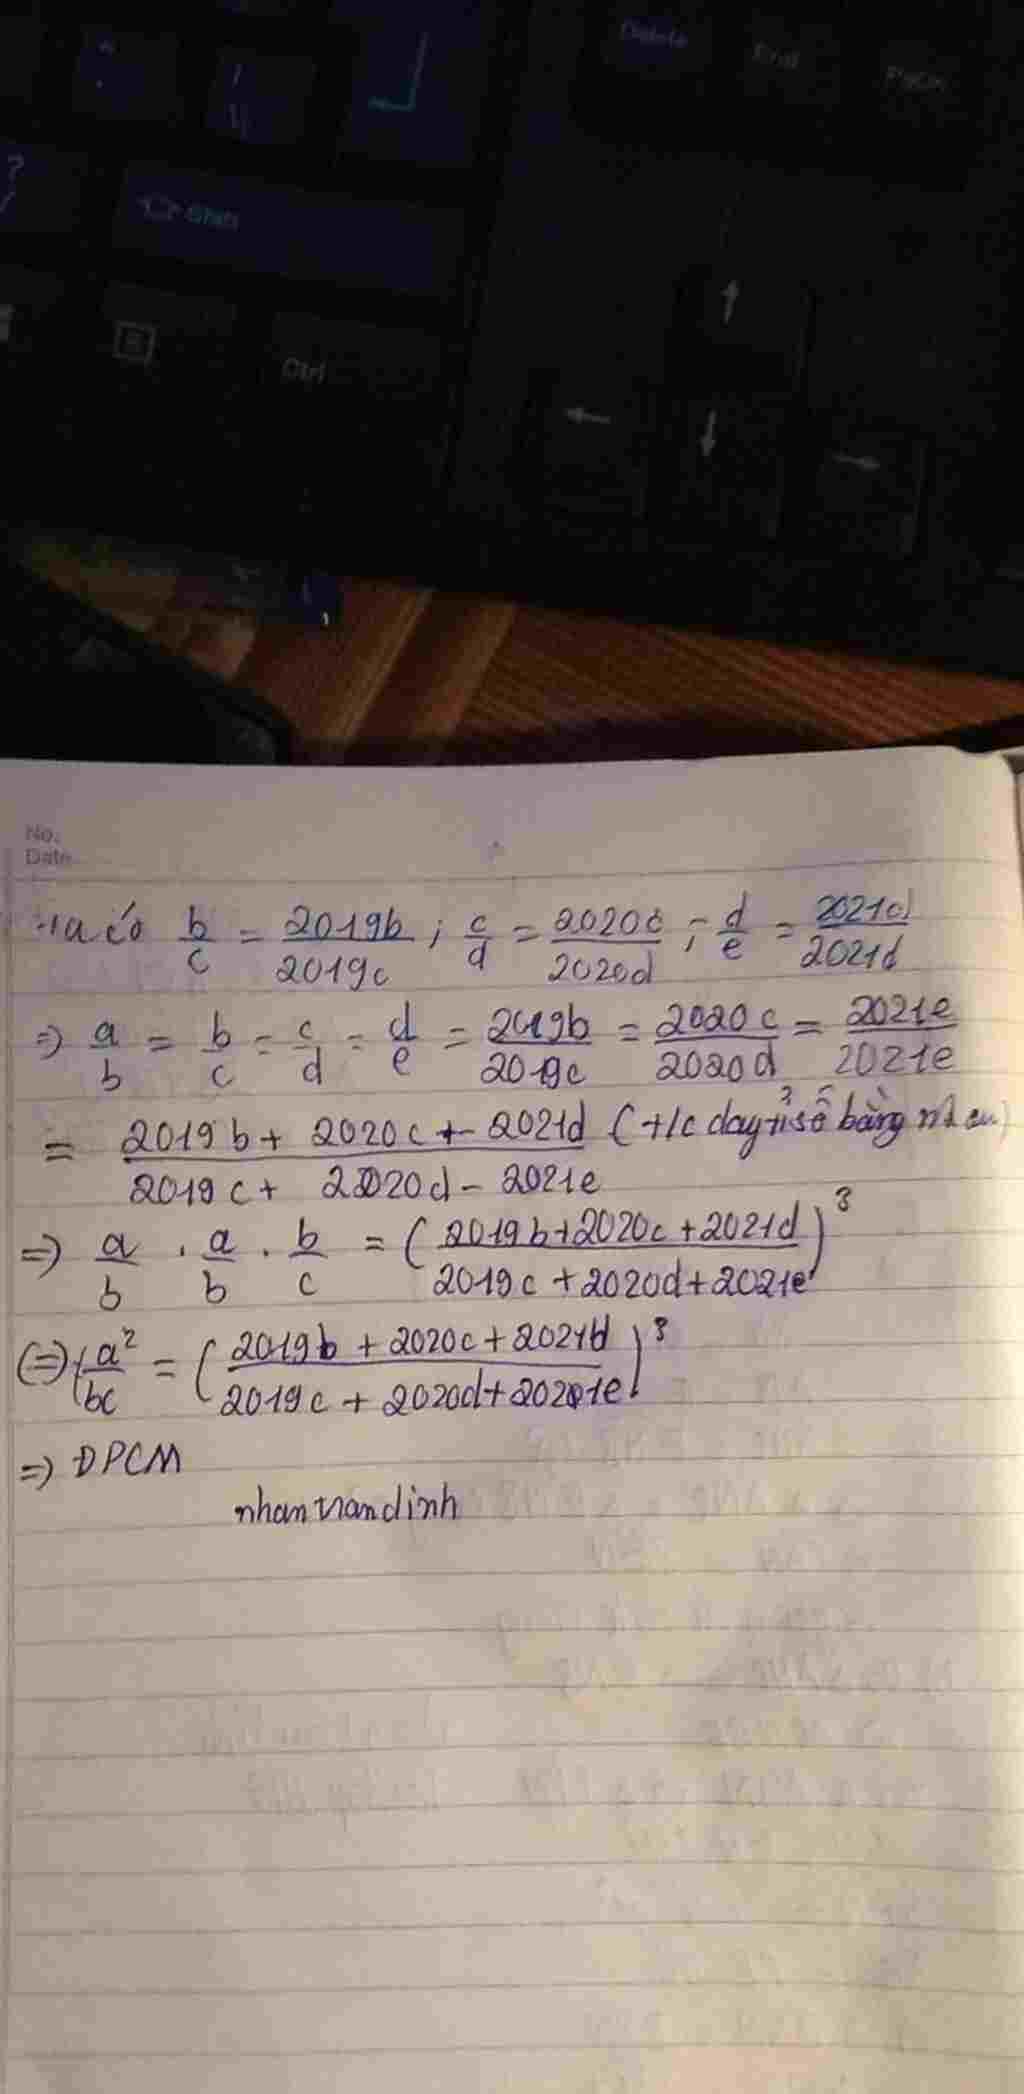 Delete End PgDn
? /
Shift
Ctrl
No.
Date
Ta có b/c = 2019b/2019c ; c/d = 2020c/2020d ; d/e = 2021d/2021d
=> a/b = b/c = c/d = d/e = 2019b/2019c = 2020c/2020d = 2021e/2021e
= (2019b + 2020c + 2021d)/(2019c + 2020d - 2021e) (t/c day tỉ số bằng nhau)
=> a/b . a/b . b/c = ((2019b+2020c+2021d)/(2019c+2020d+2021e))³
(=>) a²/bc = ((2019b + 2020c + 2021d)/(2019c + 2020d + 2021e))³
=> ĐPCM
nhantrandinh